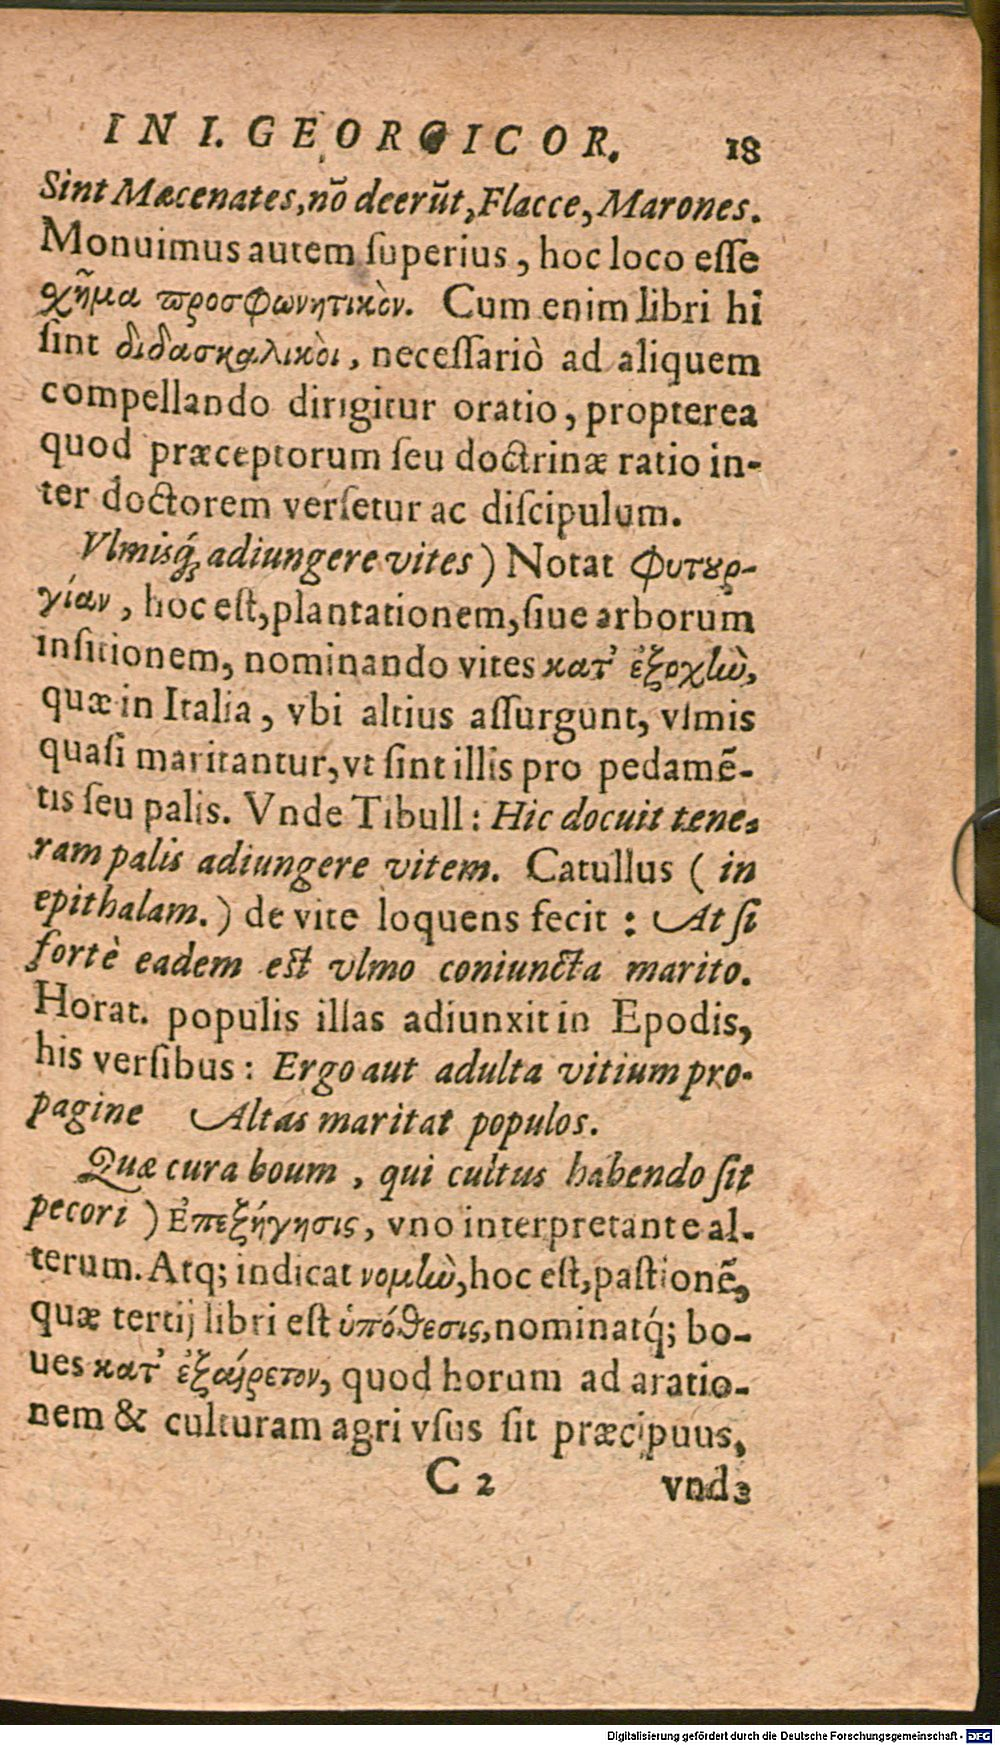 IN I. GEORGICOR. 18
Sint Mæcenates, nō deerūt, Flacce, Marones.
Monuimus autem ſuperius, hoc loco eſſe
σχῆμα προσφωνητικὸν. Cum enim libri hi
ſint διδασκαλικὸι, neceſſariò ad aliquem
compellando dirigitur oratio, propterea
quod præceptorum ſeu doctrinæ ratio in-
ter doctorem verſetur ac diſcipulum.
Vlmisq́ue adiungere vites) Notat φυτουρ-
γίαν, hoc eſt, plantationem, ſiue arborum
inſitionem, nominando vites κατ' ἐξοχὴν,
quæ in Italia, vbi altius aſſurgunt, vlmis
quaſi maritantur, vt ſint illis pro pedamē-
tis ſeu palis. Vnde Tibull: Hic docuit tene-
ram palis adiungere vitem. Catullus (in
epithalam.) de vite loquens fecit: At ſi
fortè eadem eſt vlmo coniuncta marito.
Horat. populis illas adiunxit in Epodis,
his verſibus: Ergo aut adulta vitium pro-
pagine Altas maritat populos.
Quæ cura boum, qui cultus habendo ſit
pecori) Ἐπεξήγησις, vno interpretante al-
terum. Atq; indicat νομὴν, hoc eſt, paſtionē,
quæ tertij libri eſt ὑπόθεσις, nominatq́; bo-
ues κατ' ἐξαίρετον, quod horum ad aratio-
nem & culturam agri vſus ſit præcipuus,
C 2 vnde
Digitalisierung gefördert durch die Deutsche Forschungsgemeinschaft - DFG